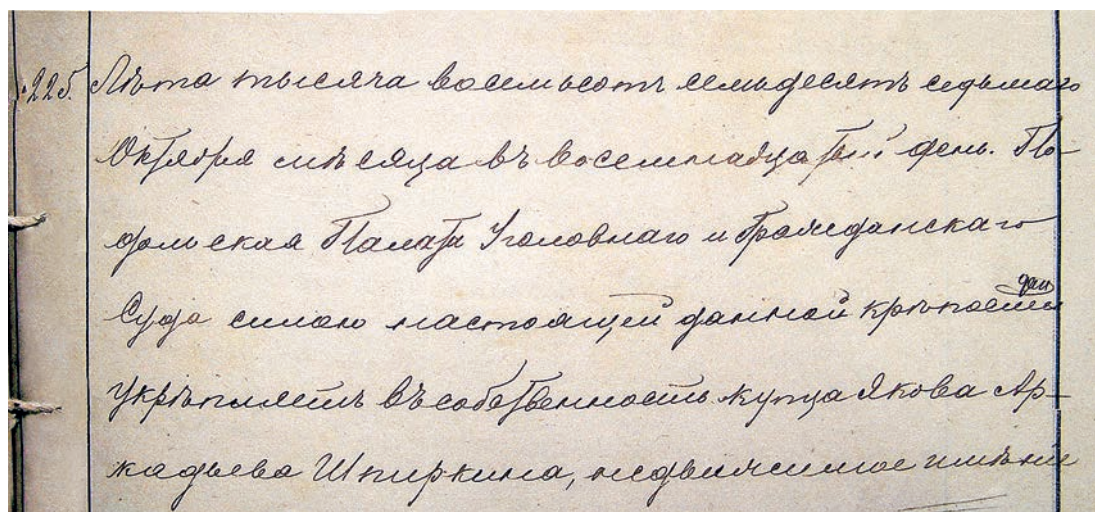 225. Лѣта тысяча восемьсотъ семьдесятъ седьмаго
Октября мѣсяца въ восемнадцатый день. По-
дольская Палата Уголовнаго и Гражданскаго
Суда силою настоящей данной крѣпости
укрѣпляетъ въ собственность купца Якова Ар-
кадьева Шпиркина, недвижимое имѣніе